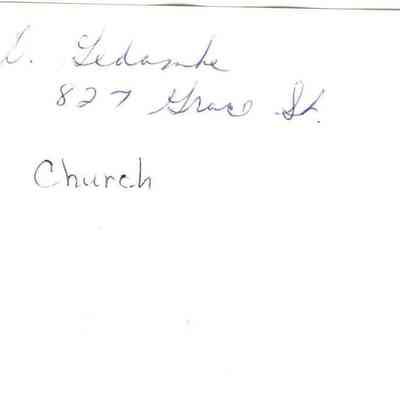 827 Grace St.
Church